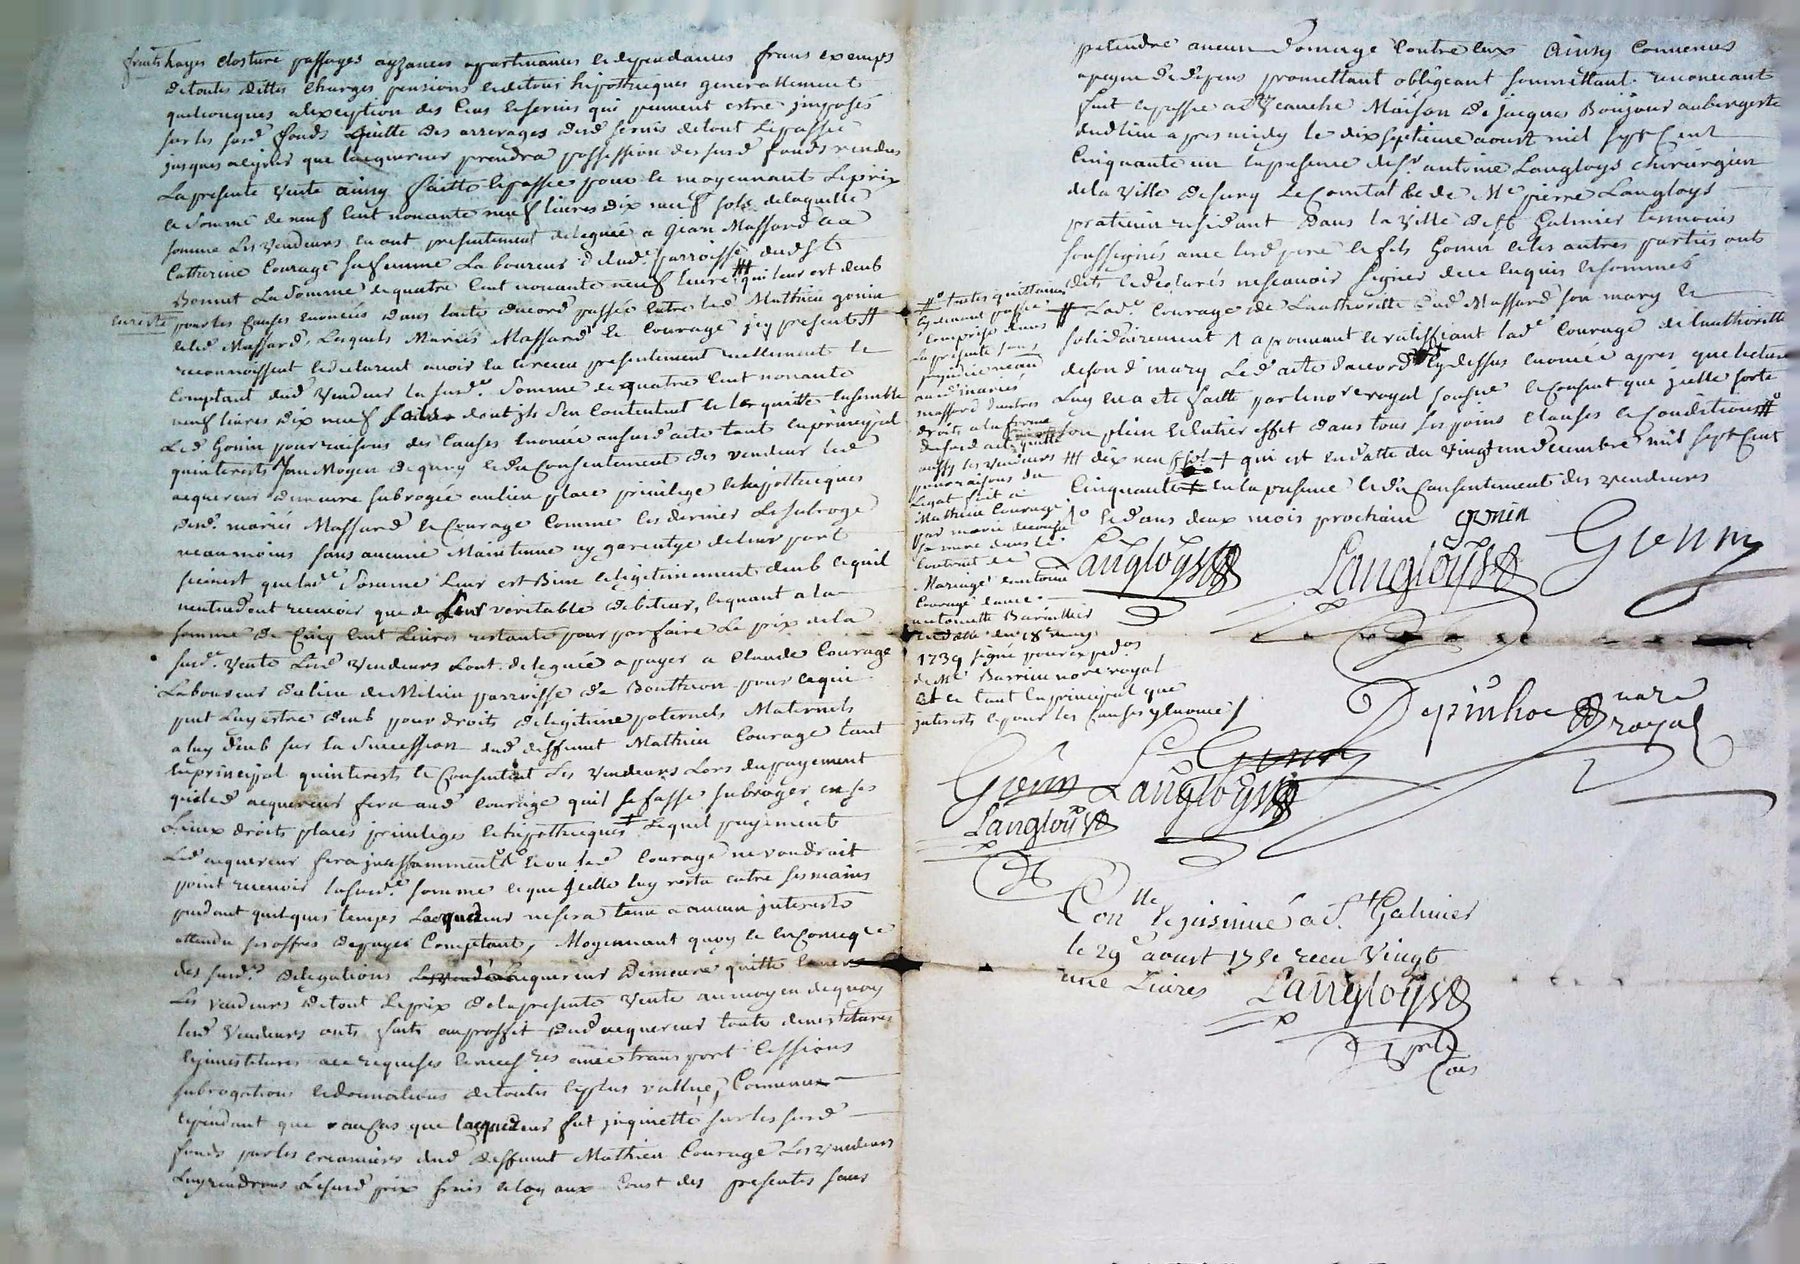 fruits hayes closture passages ayzances apartinances et dependances frans exempts
de toutes dettes charges pensions et de tous hipothecques generallement
quelconques a lexception des cens et servis qui peuvent estre imposés
sur les surd. fonds quitte des arrerages desd. servis de tout le passé
jusques au jour que lacquereur prendra possession des surd. fonds vendus
La presente vente ainsy faitte et passée pour et moyennant le prix
et somme de neuf cent nonante neuf livres dix neuf sols de laquelle
somme les vendeurs en ont presentement delegué a jean Massard et a
Catherine Courage sa femme Laboureur dud. parroisse dud. St
Bonnet La somme de quatre cent nonante neuf livre qui leur est deub
en reste pour les causes enoncés dans lacte dacord passée entre led. Mathieu gonin
et led. Massard, lesquels Mariés Massard et Courage jcy presents
reconnoissent et declarent avoir eu et receu presentement reellement et
comptant dud. vendeur la surd. somme de quatre cent nonante
neuf livres dix neuf sols dont jls sen contentent et le quitte ensemble
Led. Gonin pour raisons des causes enoncée ausurd. acte tant en principal
quinterests Au Moyen de quoy et du Consentement des vendeur led.
acquereur demeure subrogée au lieu place privilege et hipothecques
desd. mariés Massard et Courage comme les dernier le subroge
neanmoins sans aucune Maintenue ny garentye de leur part
sinon que lad. somme leur est Bien et legitimement deub et quil
nentendent recevoir que de leur veritable debiteur, et quant a la
somme de Cinq cent Livres restante pour parfaire Le prix de la
surd. vente Lesd. vendeurs lont deleguée a payer a Claude Courage
Laboureur du lieu de Milieu parroisse de Bouthéon pour ce qui
peut luy estre deub pour droits de legitime paternels Maternels
a luy deub sur la succession dud. deffunt Mathieu Courage tant
en principal quinterests et Consentent les vendeurs lors du payement
que led. acquereur fera aud. Courage quil se fasse subroger en ses
Lieux droits places privileges et hipothecques Lequel payement
Led. acquereur fera jncessamment et ou led. Courage ne voudroit
point recevoir la surd. somme et que jcelle luy resta entre ses mains
pendant quelques temps Lacquereur ne sera tenu a aucun jnterests
attendu ses offres de payer Comptant, Moyennant quoy et en Conseqce
des surd. delegations acquereur demeure quitte envers
les vendeurs de tout le prix de la presente vente au moyen de quoy
lesd. vendeurs onts faits au proffit dud. acquereur toute demestitures
et jnvestitures a ce requises et necesres avec transport cessions
subrogations et donnations de toutes les plus vallue, Convenu
cependant que au cas que lacquereur fut jnquietté sur les surd.
fonds par les creanciers dud. deffunt Mathieu Courage Les vendeurs
Luy rendrons Le surd. prix frais et loyaux Coust des presentes sans
pretendre aucun domage contre eux ainsy Convenus
a peyne de depens promettant obligeant soumettant renonceant
fait et passé a Maison de jacques Boujour aubergiste
dud. lieu apres midy le dix septieme aoust mil sept Cent
Cinquante un en presence de sr. antoine Langloys chirurgien
de la ville de sury Le Comtal et de Me pierre Langloys
praticien residant dans la ville de St Galmier temoins
soussignés avec led. pere et fils Gonin et les autres parties onts
dits et declarés ne scavoir signer de ce enquis et sommés
Lad. Courage de Lauthoritté dud. Massard son mary et
solidairement aprouvant et ratiffiant lad. Courage de lauthoritté
de sond. mary Led. acte dacord cy dessus enoncée apres que lecture
Luy en a eté faitte par le nore royal sousné et consent que jcelle sorte
son plein et entier effet dans tous ses poins clauses et conditions
dix neuf sols qui est en datte du vingt un decembre mil sept Cent
Cinquante en la presence et du Consentement des vendeurs
et dans deux mois prochain gonin
toutes quittances
cy devant passée
comprise dans
La presente sans
prejudice neanm
aud. mariés
massard dautres
droits a la forme
du surd. acte quitte
aussy les vendeurs
pour raisons du
Legat fait a
Mathieu Courage
par marie
sa mere dans le
contrat de
Mariage dantoine
Courage avec
antoinette Barailler
en datte du 18e may
1739 signé pour expedon
de Me Barrieu nore royal
et ce tant en principal que
jnterests et pour les causes y enoncés
Langloys Langloys Gonin
Depinhoc nore
royal
Gonin Gonin
Langloys Langloys
Conlle et jnsinué a St Galmier
le 29e aoust 1751 receu vingt
une Livres Langloys